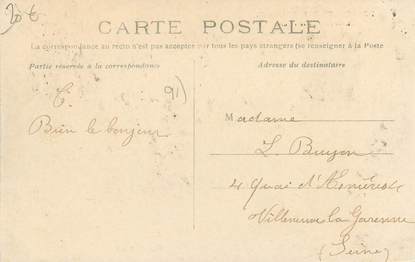 20 €
CARTE POSTALE
La correspondance au recto n'est pas acceptée par tous les pays étrangers (se renseigner à la Poste
Partie réservée à la correspondance
Adresse du destinataire
91)
Bien le bonjour
Madame
L. Buyon
4 Quai d'Asnières
Villeneuve la Garenne
(Seine)